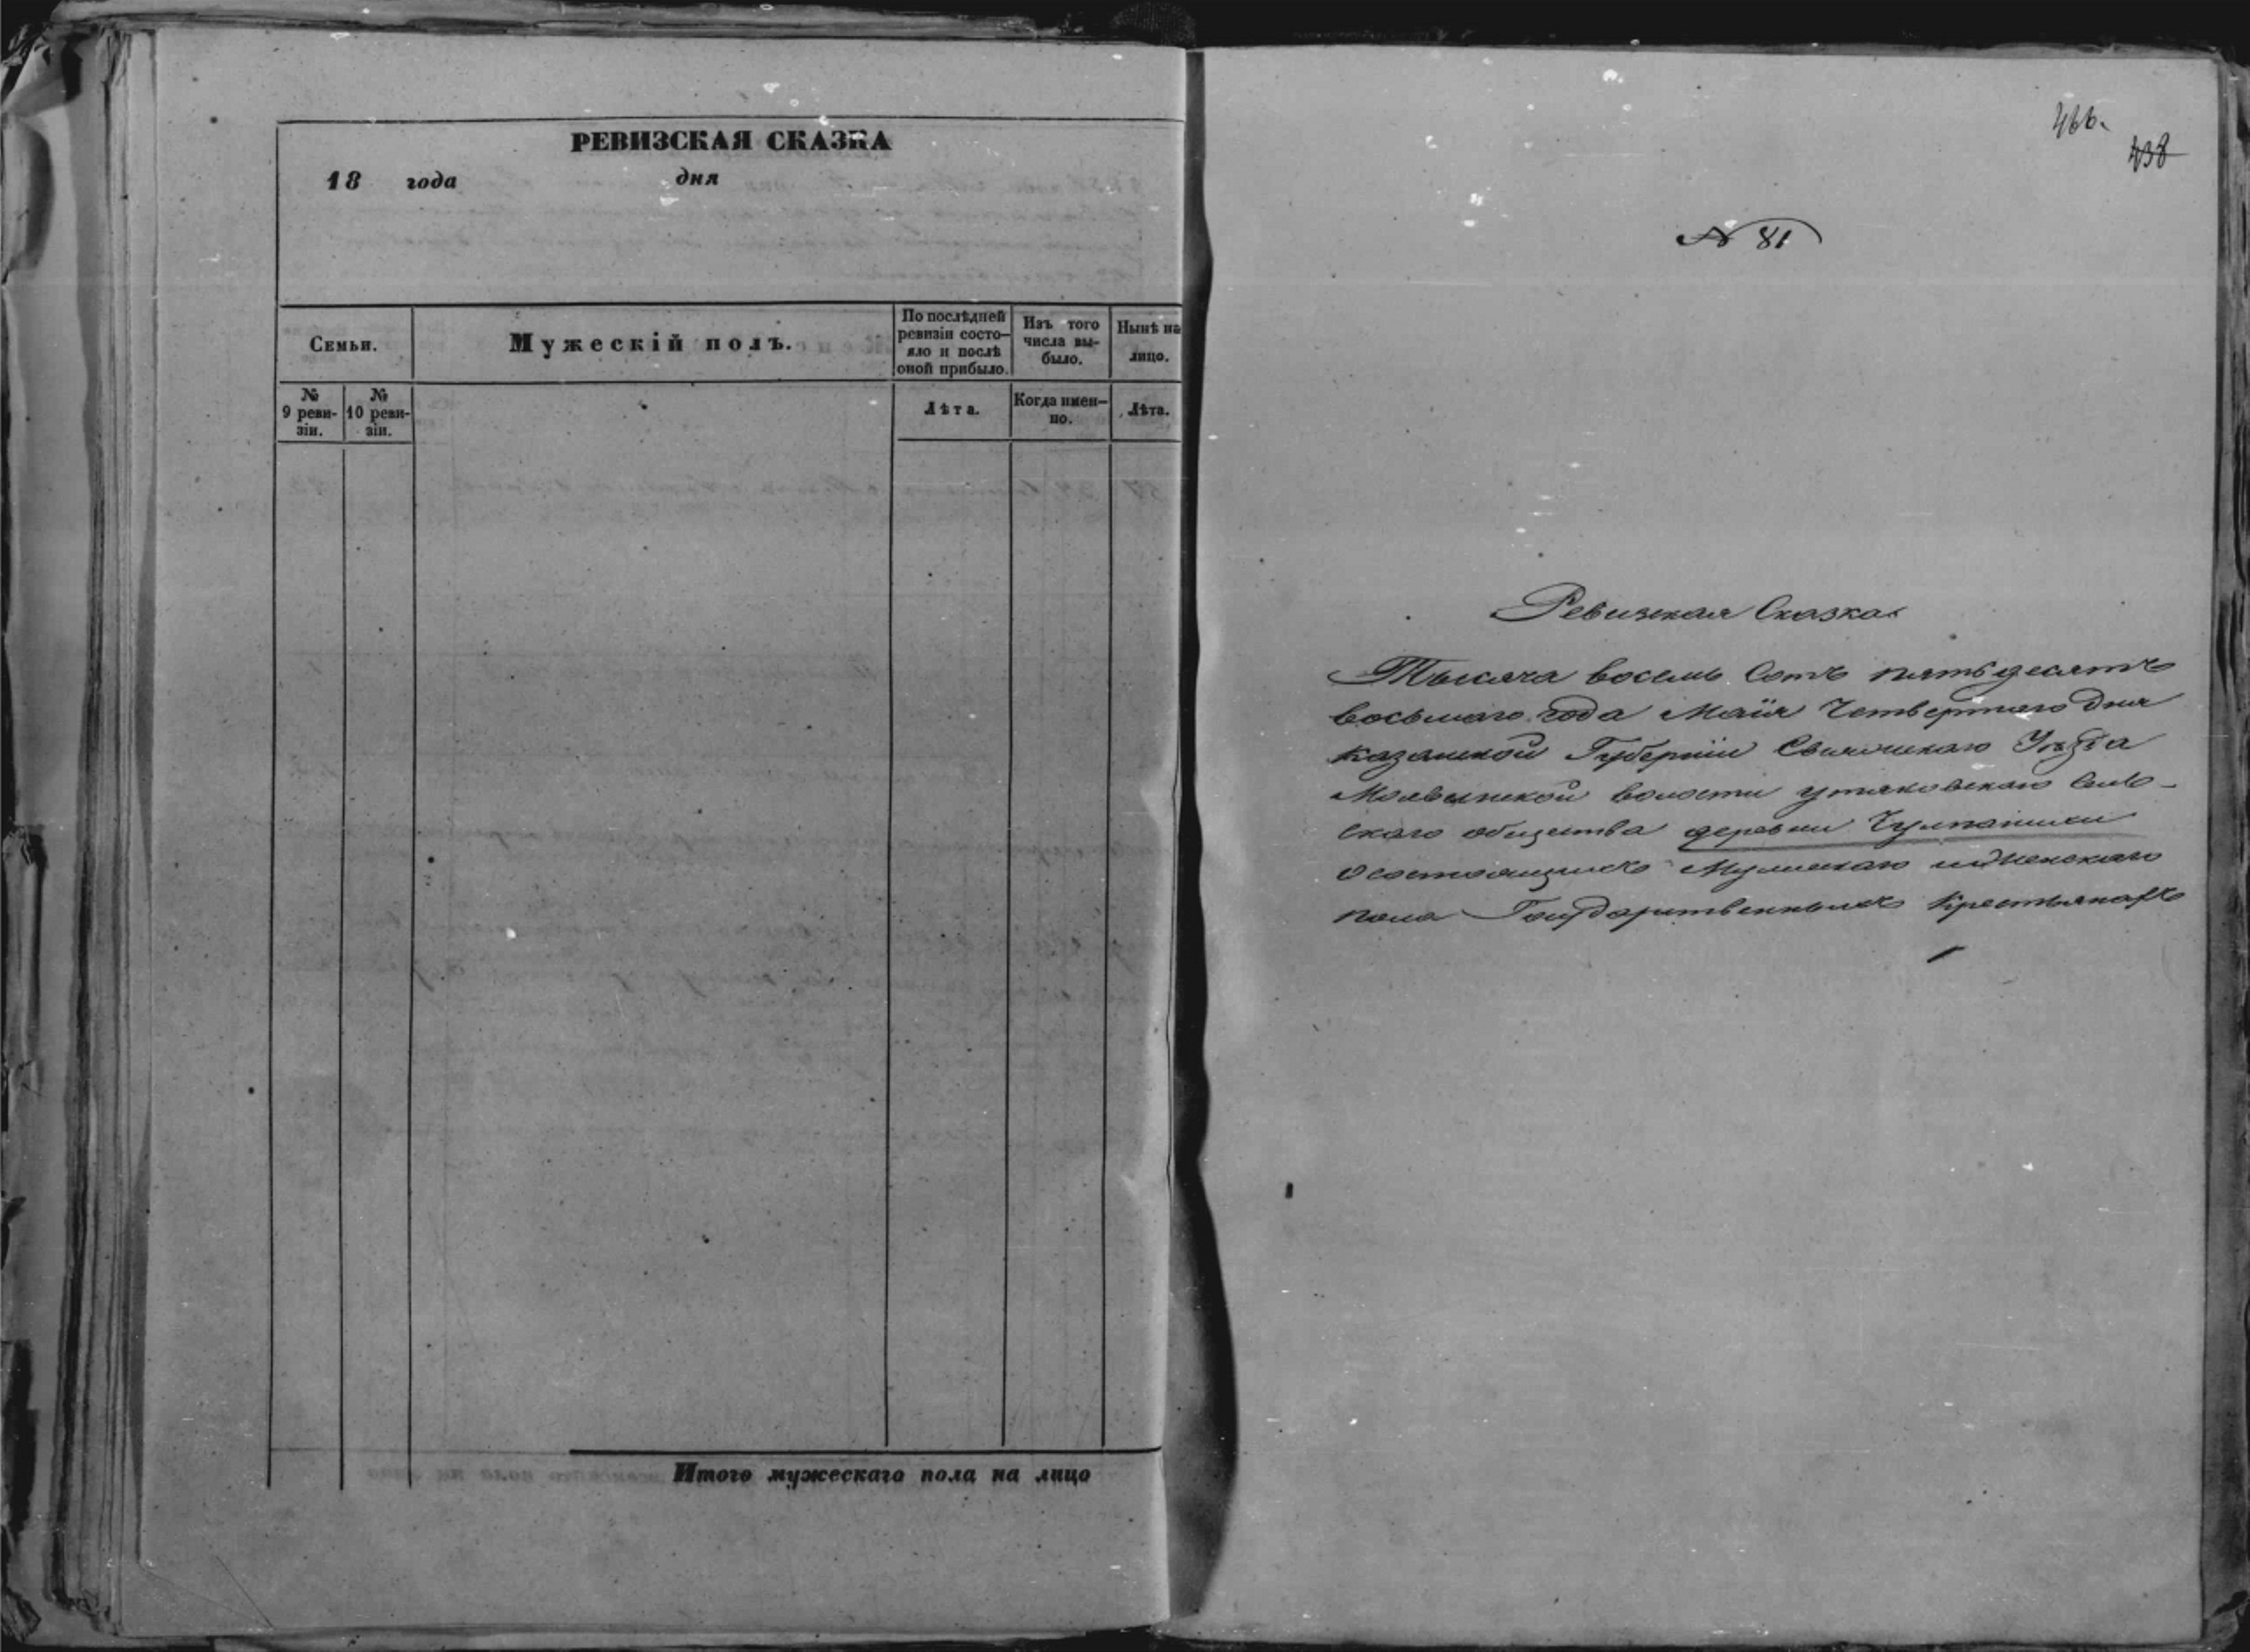 РЕВИЗСКАЯ СКАЗКА
18 года дня
Семьи.
Мужескій полъ.
По послѣдней
ревизіи состо-
яло и послѣ
оной прибыло.
Изъ того
числа вы-
было.
Нынѣ на
лицо.
№
9 реви-
зіи.
№
10 реви-
зіи.
Лѣта.
Когда имен-
но.
Лѣта.
Итого мужескаго пола на лицо
466.
438
№ 81
Ревизская Сказка
Тысяча восемь Сотъ пятьдесятъ
восьмаго года Маія Четвертаго Дня
Казанской Губерніи Свіяжскаго Уѣзда
волости утяковскаго Сель-
скаго общества деревни
О состоящихъ Мужескаго и Женскаго
пола Государственныхъ Крестьянахъ